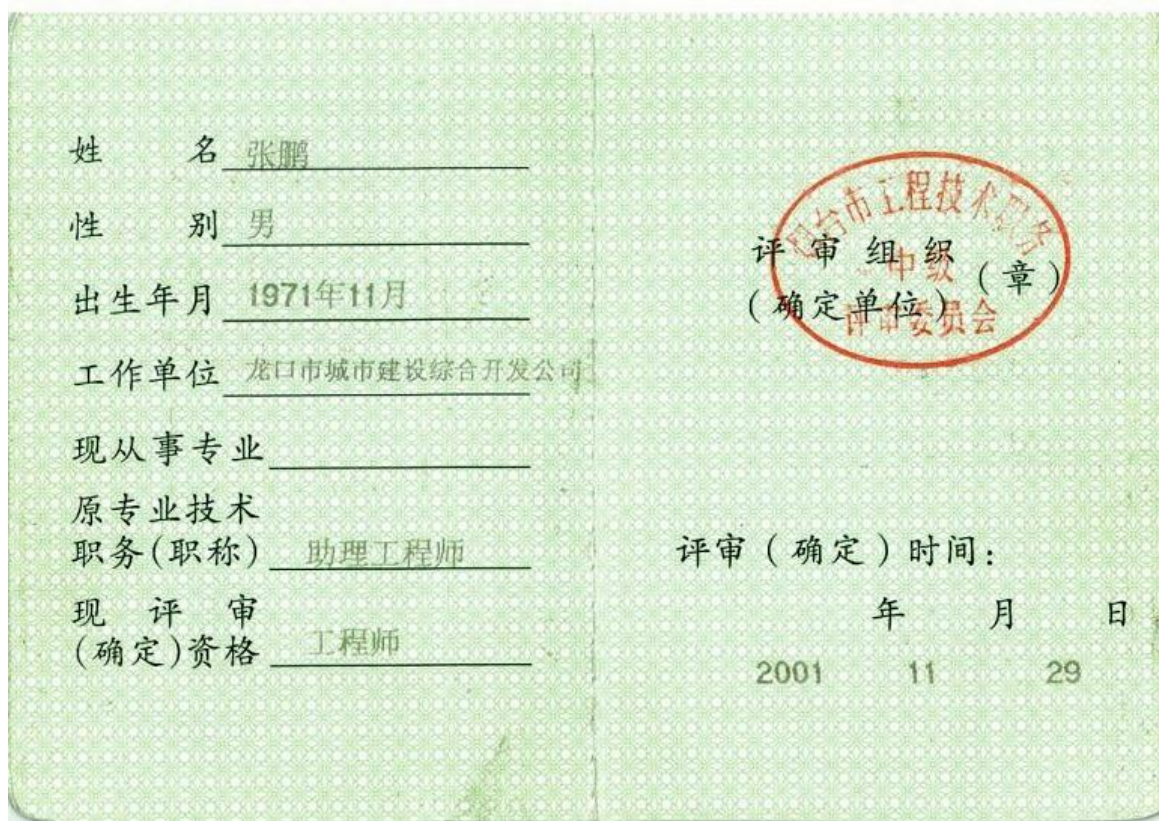 姓 名 张鹏
性 别 男
出生年月 1971年11月
工作单位 龙口市城市建设综合开发公司
现从事专业
原专业技术
职务(职称) 助理工程师
现 评 审
(确定)资格 工程师
烟台市工程技术职务
中级
评审委员会
评 审 组 织
(确定单位)
(章)
评审(确定)时间:
年 月 日
2001 11 29